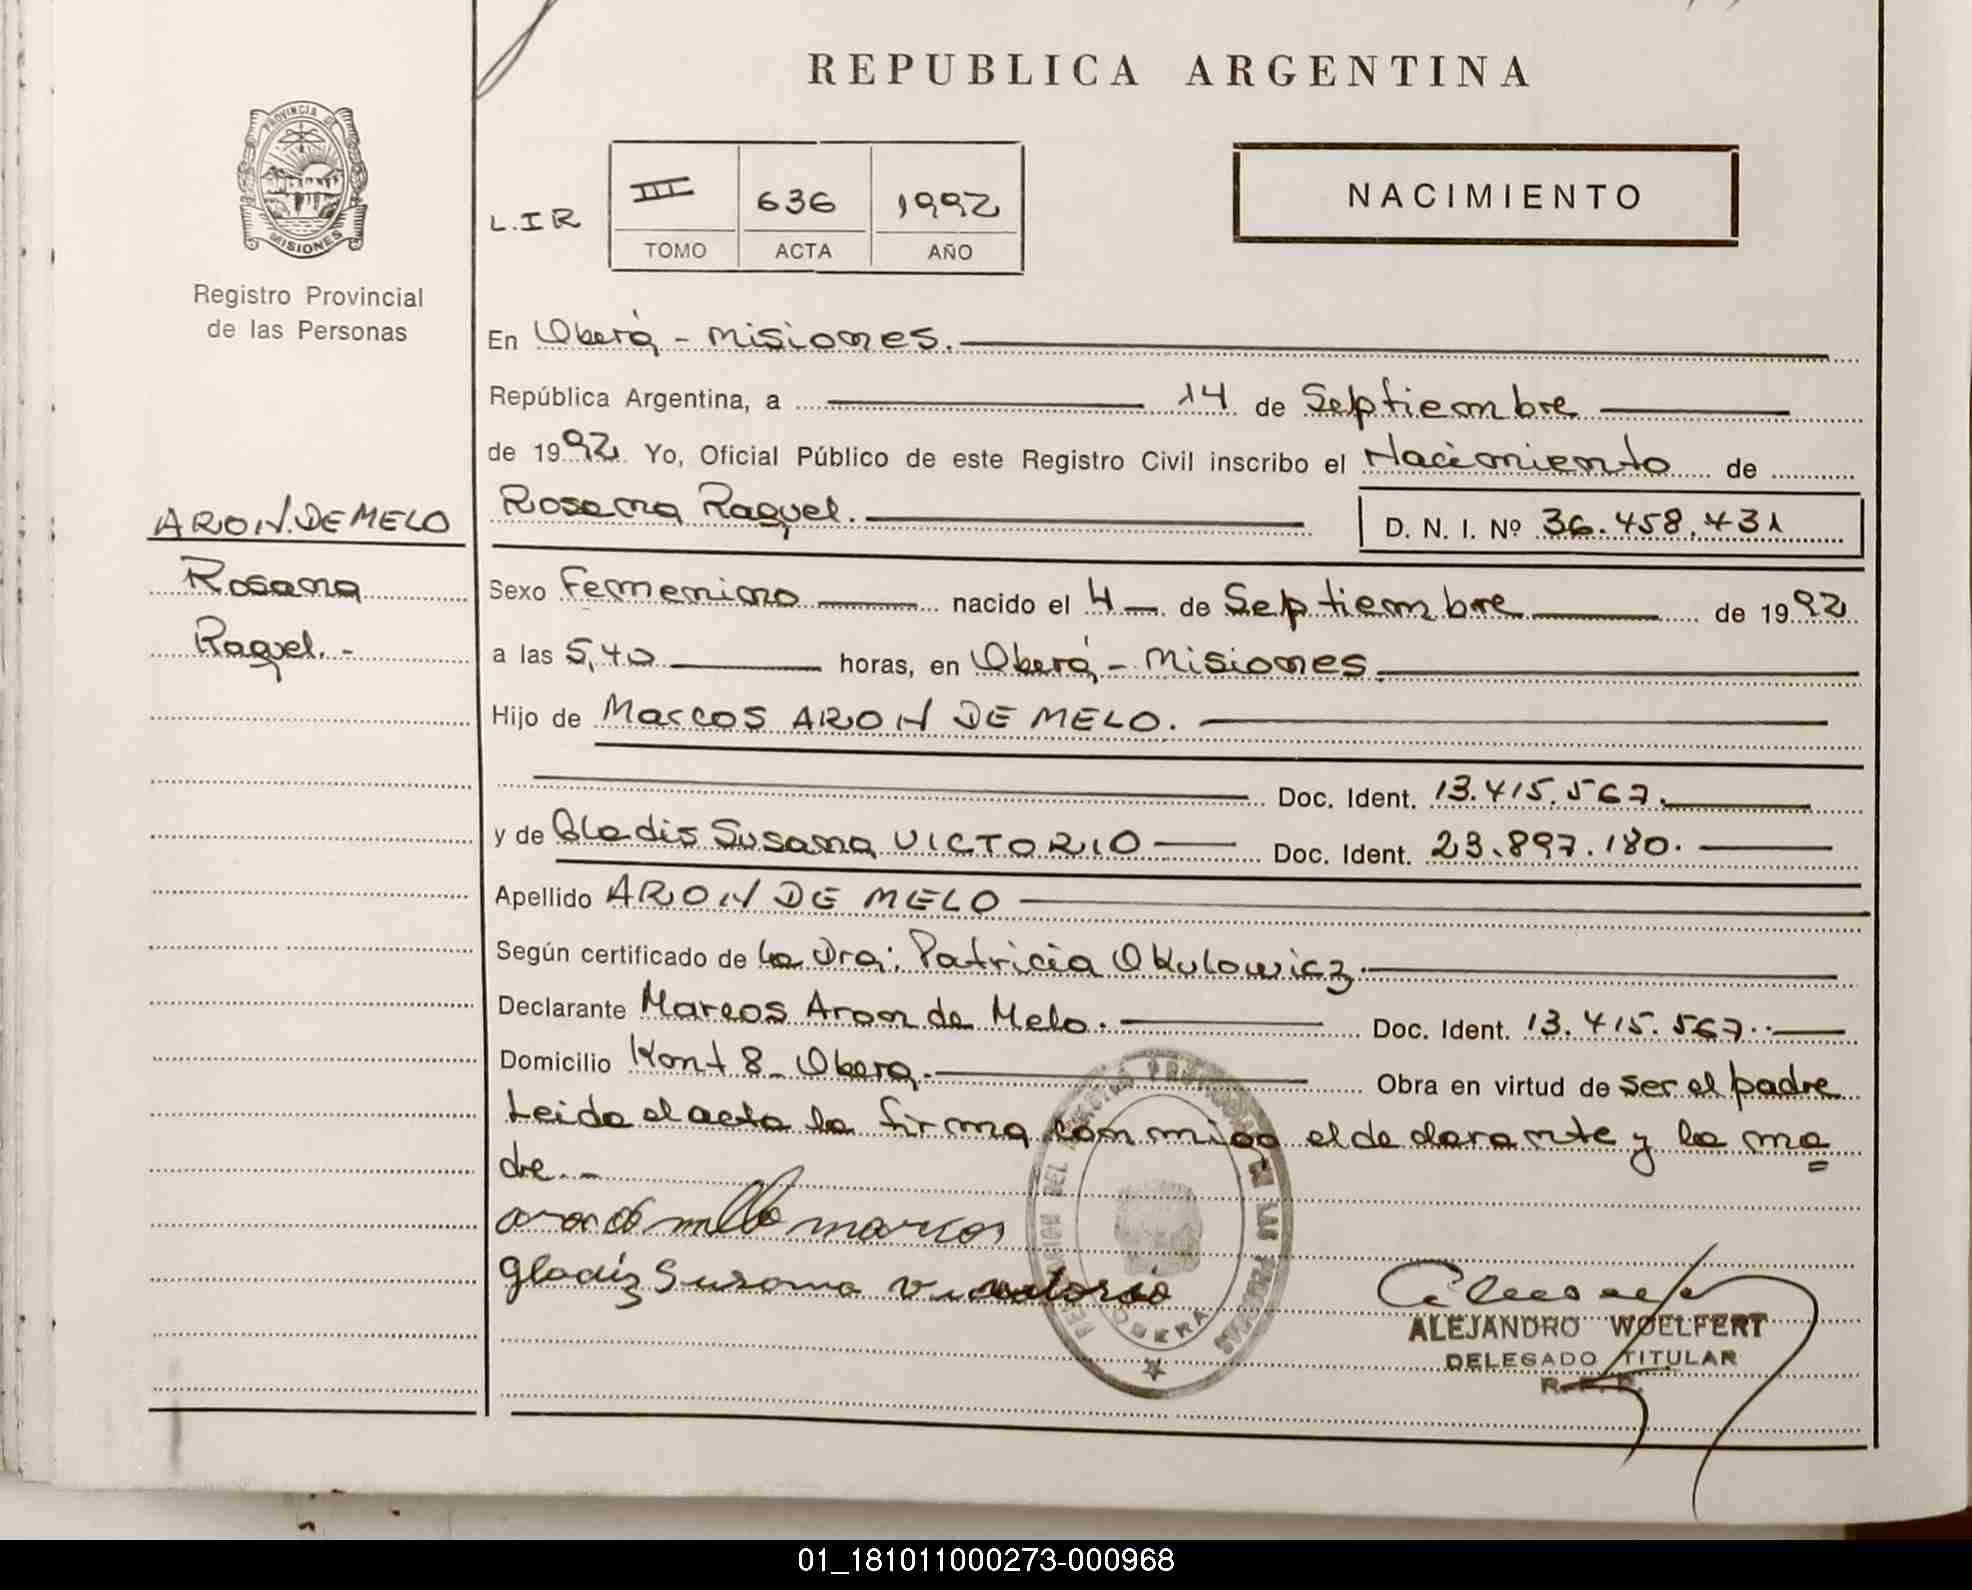 REPUBLICA ARGENTINA
PROVINCIA DE
MISIONES
Registro Provincial
de las Personas
L.I R
III 636 1992
TOMO ACTA AÑO
NACIMIENTO
En Oberá - Misiones.
República Argentina, a 14 de Septiembre
de 1992 Yo, Oficial Público de este Registro Civil inscribo el Nacimiento de
ARON DE MELO
Rosana
Raquel. -
Rosana Raquel.
D. N. I. Nº 36.458.431
Sexo Femenino nacido el 4 de Septiembre de 1992
a las 5,40 horas, en Oberá - Misiones
Hijo de Marcos ARON DE MELO.
Doc. Ident. 13.415.567.
y de Gladis Susana VICTORIO Doc. Ident. 23.897.180.
Apellido ARON DE MELO
Según certificado de la Dra: Patricia Okulowicz
Declarante Marcos Aron de Melo. Doc. Ident. 13.415.567.
Domicilio Kont 8 - Oberá. Obra en virtud de ser el padre
Leida el acta la firma conmigo el declarante y la ma
dre. -
marcos
Gladiz Susana
OBERA
ALEJANDRO WOELFERT
DELEGADO TITULAR
R. P. P.
01_181011000273-000968